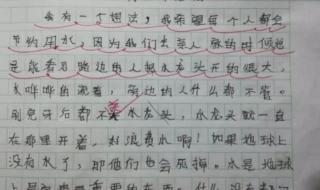 我有一个想法，我希望每个人都会
节约用水，因为我们去等人 的时候总
是能看见路边的人把水龙头开的很大，
水哗哗的流着，旁边的人什么都不管。
刷完牙后都不关水龙头，水龙头就一直
在那里开着，好浪费水啊！如果地球上
没有水了，那他们也会死掉。水是地球
上最 重要的东西，什么 没有